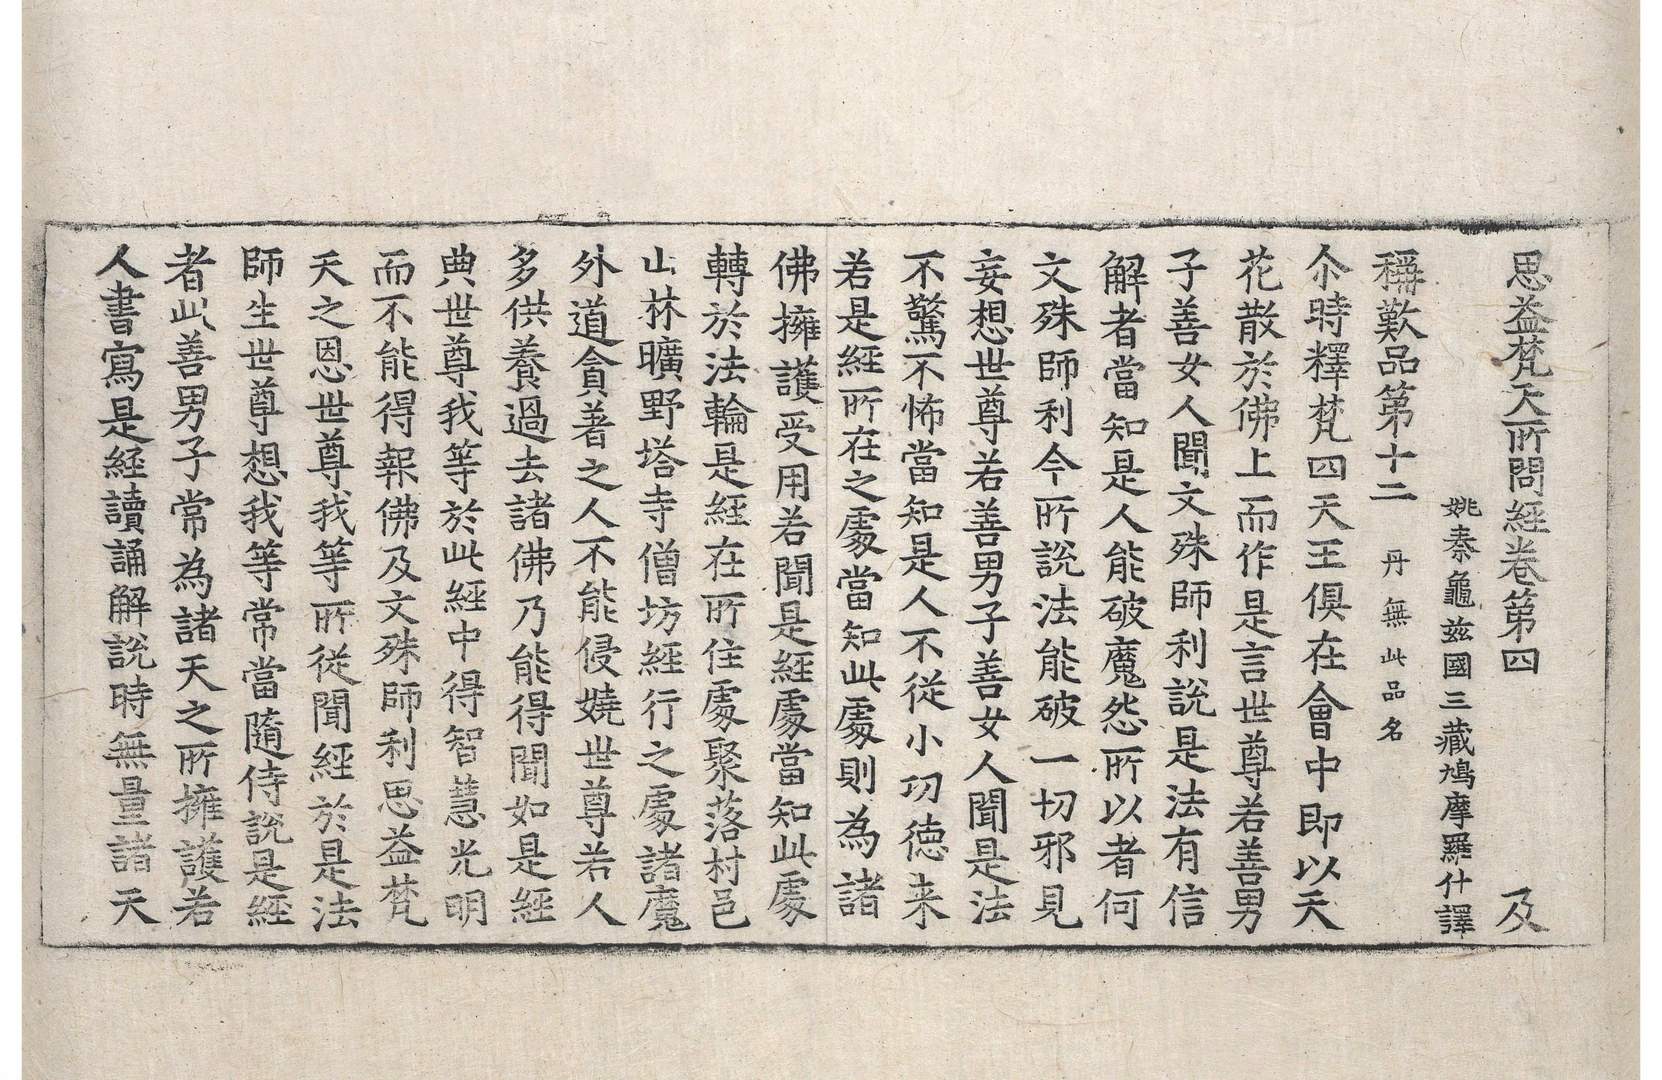 思益梵天所問經卷第四 及
姚秦龜兹國三藏鳩摩羅什譯
稱歎品第十二 丹無此品名
尒時釋梵四天王俱在會中即以天
花散於佛上而作是言世尊若善男
子善女人聞文殊師利說是法有信
解者當知是人能破魔怨所以者何
文殊師利今所說法能破一切邪見
妄想世尊若善男子善女人聞是法
不驚不怖當知是人不從小功德来
若是經所在之處當知此處則為諸
佛擁護受用若聞是經處當知此處
轉於法輪是經在所住處聚落村邑
山林曠野塔寺僧坊經行之處諸魔
外道貪著之人不能侵嬈世尊若人
多供養過去諸佛乃能得聞如是經
典世尊我等於此經中得智慧光明
而不能得報佛及文殊師利思益梵
天之恩世尊我等所從聞經於是法
師生世尊想我等常當隨侍說是經
者此善男子常為諸天之所擁護若
人書寫是經讀誦解說時無量諸天